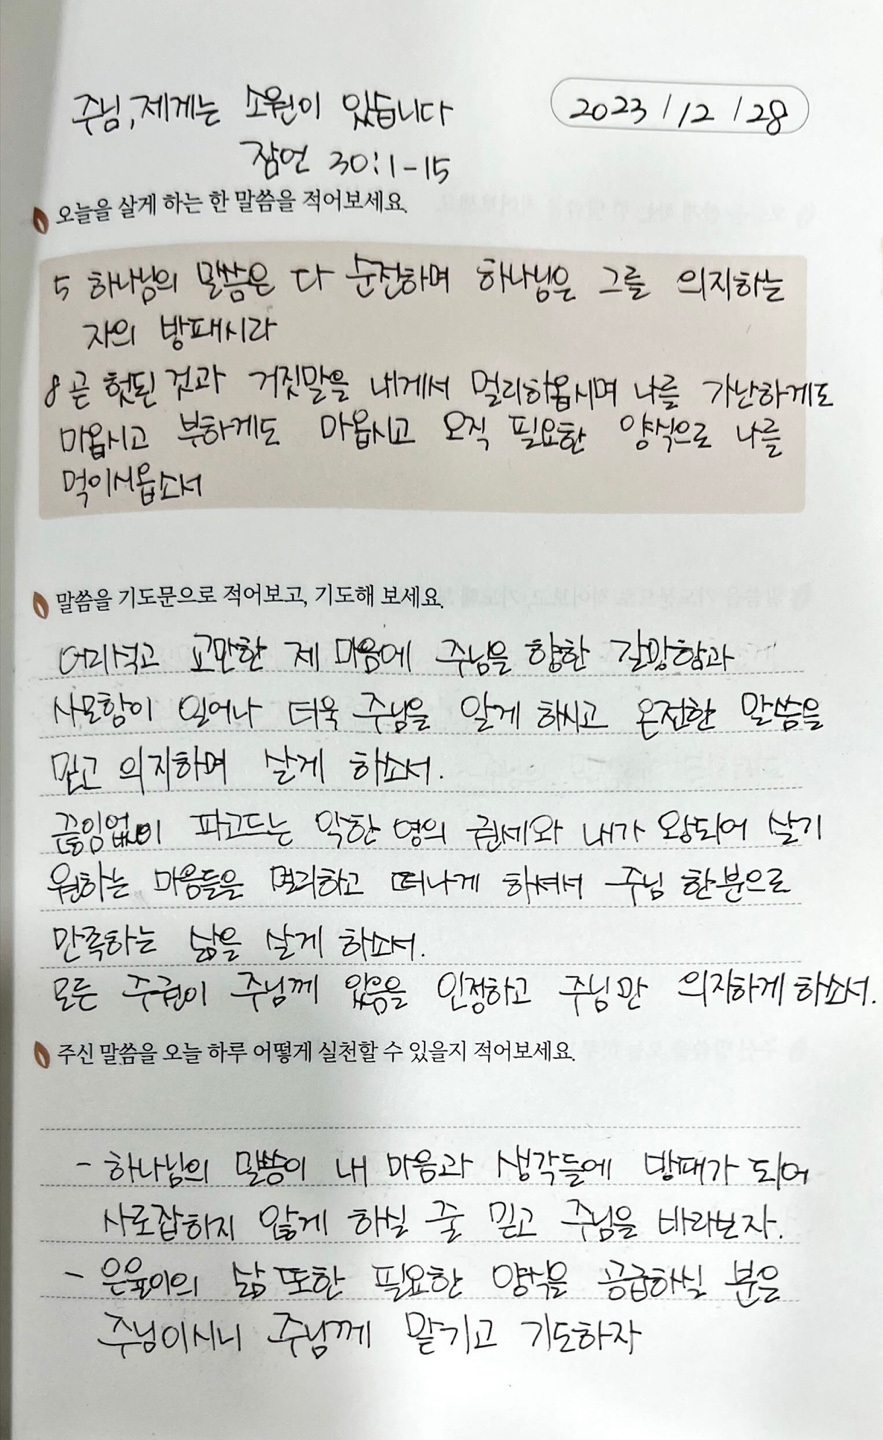 주님, 제게는 소원이 있습니다
2023 / 12 / 28
잠언 30:1-15
오늘을 살게 하는 한 말씀을 적어보세요.
5 하나님의 말씀은 다 순전하며 하나님은 그를 의지하는
자의 방패시라
8 곧 헛된 것과 거짓말을 내게서 멀리하옵시며 나를 가난하게도
마옵시고 부하게도 마옵시고 오직 필요한 양식으로 나를
먹이시옵소서
말씀을 기도문으로 적어보고, 기도해 보세요.
어리석고 교만한 제 마음에 주님을 향한 갈망함과
사모함이 일어나 더욱 주님을 알게 하시고 온전한 말씀을
믿고 의지하며 살게 하소서.
끊임없이 파고드는 악한 영의 권세와 내가 왕되어 살기
원하는 마음들을 멀리하고 떠나게 하셔서 주님 한분으로
만족하는 삶을 살게 하소서.
모든 주권이 주님께 있음을 인정하고 주님만 의지하게 하소서.
주신 말씀을 오늘 하루 어떻게 실천할 수 있을지 적어보세요.
- 하나님의 말씀이 내 마음과 생각들에 방패가 되어
사로잡히지 않게 하실 줄 믿고 주님을 바라보자.
- 은율이의 삶 또한 필요한 양식을 공급하실 분은
주님이시니 주님께 맡기고 기도하자